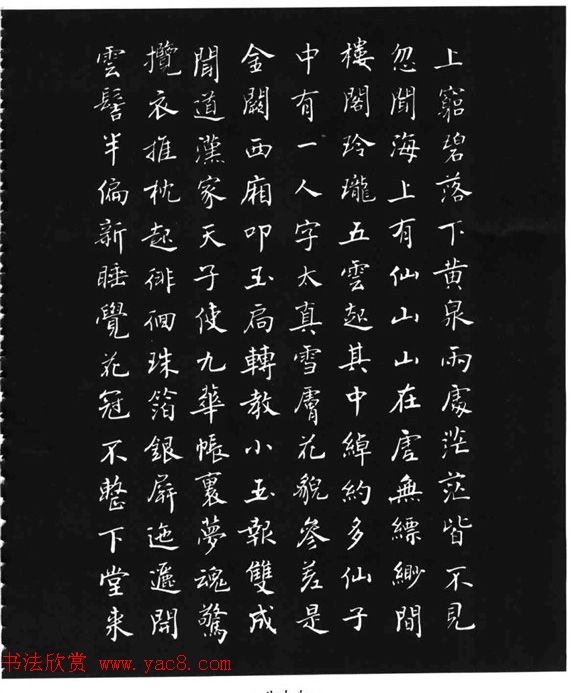 上窮碧落下黄泉兩處茫茫皆不見
忽聞海上有仙山山在虚無縹緲間
樓閣玲瓏五雲起其中綽約多仙子
中有一人字太真雪膚花貌參差是
金闕西廂叩玉扃轉教小玉報雙成
聞道漢家天子使九華帳裏夢魂驚
攬衣推枕起徘徊珠箔銀屏迤邐開
雲髻半偏新睡覺花冠不整下堂来
书法欣赏 www.yac8.com